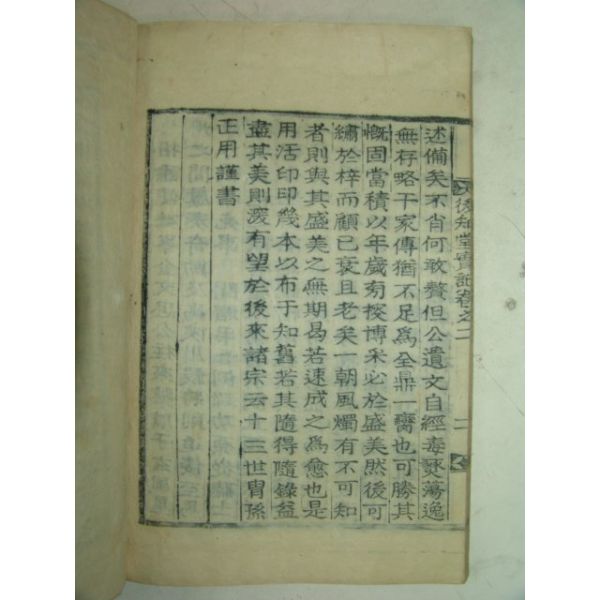 述備矣不肖何敢贅但公遺文自經毒燹蕩逸
無存略干家傳猶不足爲全鼎一臠也可勝其
慨固當積以年歲旁搜博采必於盛美然後可
繡於梓而顧已衰且老矣一朝風燭有不可知
者則與其盛美之無期曷若速成之爲愈也是
用活印印幾本以布于知舊若其隨得隨錄益
盡其美則深有望於後來諸宗云十三世胄孫
正用謹書
後知堂實記卷之二
二